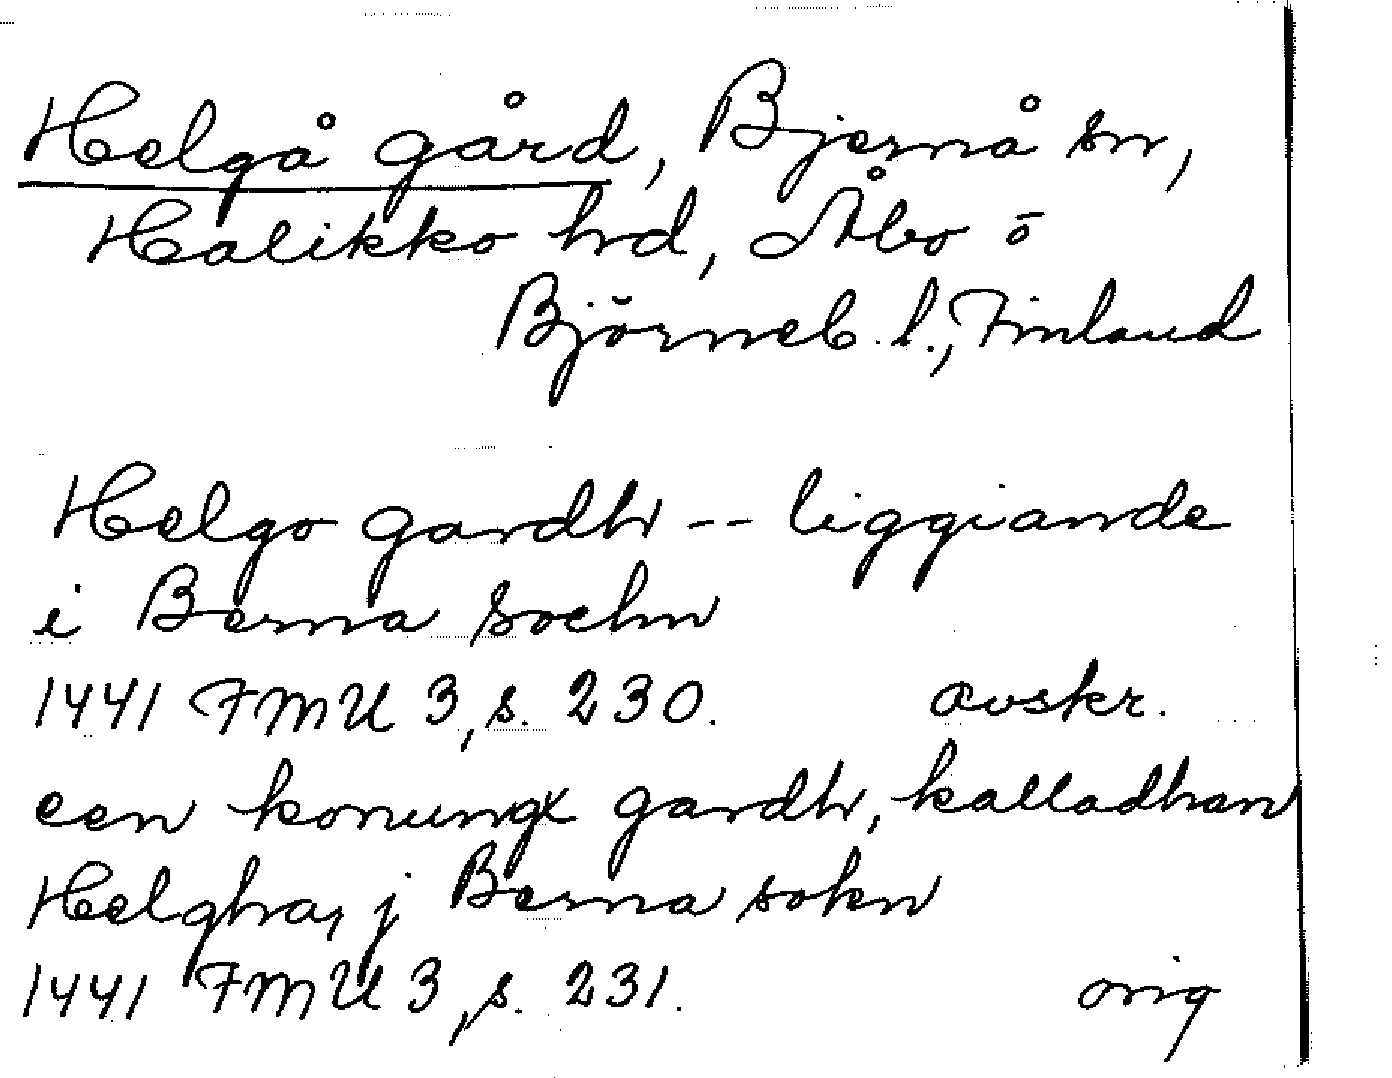 Helgå gård, Bjernå sn,
Halikko hrd, Åbo o
Björneb. l., Finland
Helgo gardh -- liggiande
i Berna sochn
1441 FMU 3, s. 230. avskr.
een konungx gardh, kalladhan
Helgha, j Berna sokn
1441 FMU 3, s. 231. orig